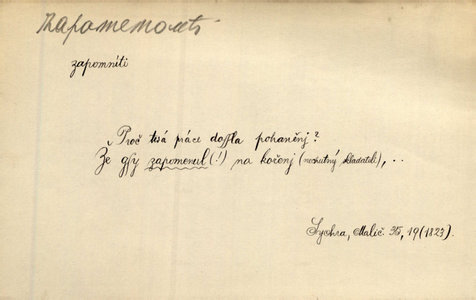 zapomenouti
zapomníti
„Proč tvá práce dossla pohaněnj?
Že gsy zapomenul (!) na kořenj (nechutný skladateli), ..
Sychra, Malič. 35, 19 (1823).